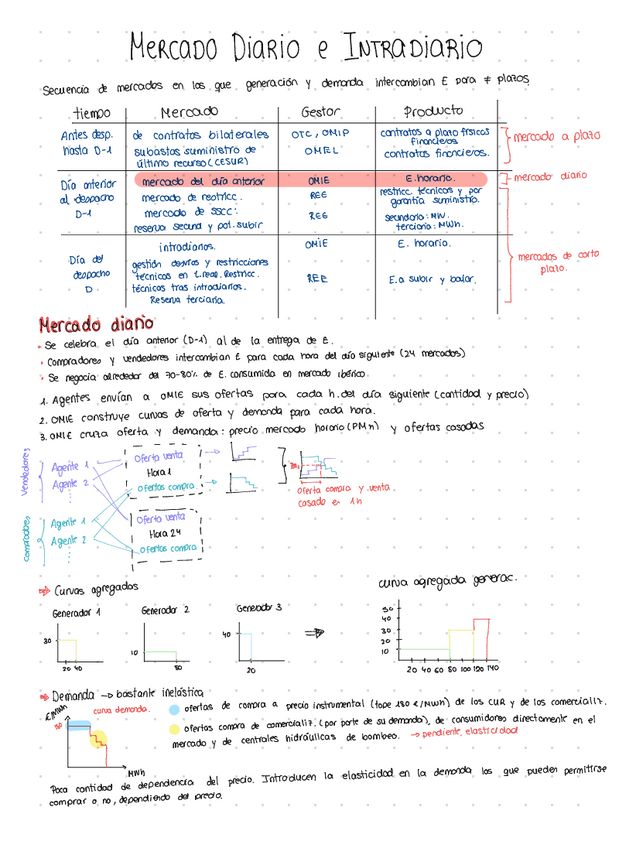 MERCADO DIARIO e INTRADIARIO
Secuencia de mercados en las que generación y demanda intercambian E para ≠ plazos
tiempo Mercado Gestor Producto
Antes desp. hasta D-1
de contratos bilaterales OTC, OMIP contratos a plazo físicos financieros
subastas suministro de último recurso (CESUR) OMEL contratos financieros.
mercado a plazo
Día anterior al despacho D-1
mercado del día anterior OMIE E. horario.
mercado diario
mercado de restricc. REE restricc técnicos y por garantía suministro.
mercado de SSCC:
reserva secund y pot. subir REE secundario: MW.
terciario: MWh.
Día del despacho D
intradiarios. OMIE E. horario.
gestión desvíos y restricciones
técnicas en t.real. Restricc.
técnicas tras intradiarios.
Reserva terciaria.
REE E.a subir y bajar.
mercados de corto plazo.
Mercado diario
• Se celebra el día anterior (D-1) al de la entrega de E.
• Compradores y vendedores intercambian E para cada hora del día siguiente (24 mercados)
• Se negocia alrededor del 70-80% de E. consumida en mercado ibérico.
1. Agentes envían a OMIE sus ofertas para cada h. del día siguiente (cantidad y precio)
2. OMIE construye curvas de oferta y demanda para cada hora.
3. OMIE cruza oferta y demanda: precio mercado horario (PMh) y ofertas casadas
Vendedores
Agente 1
Agente 2
Oferta venta
Hora 1
Ofertas compra
Oferta compra y venta
casado en 1h
Compradores
Agente 1
Agente 2
Oferta venta
Hora 24
Ofertas compra
⇒ Curvas agregadas
curva agregada generac.
Generador 1 Generador 2 Generador 3
30
20 40
10
80
40
20
⇒
50
40
30
20
10
20 40 60 80 100 120 140
⇒ Demanda → bastante inelástica
€/MWh
180
curva demanda.
MWh
ofertas de compra a precio instrumental (tope 180 €/MWh) de los CUR y de los comercializ.
ofertas compra de comercializ. (por parte de su demanda), de consumidores directamente en el
mercado y de centrales hidráulicas de bombeo. → pendiente, elasticidad
Poca cantidad de dependencia del precio. Introducen la elasticidad en la demanda los que pueden permitirse
comprar o no, dependiendo del precio.